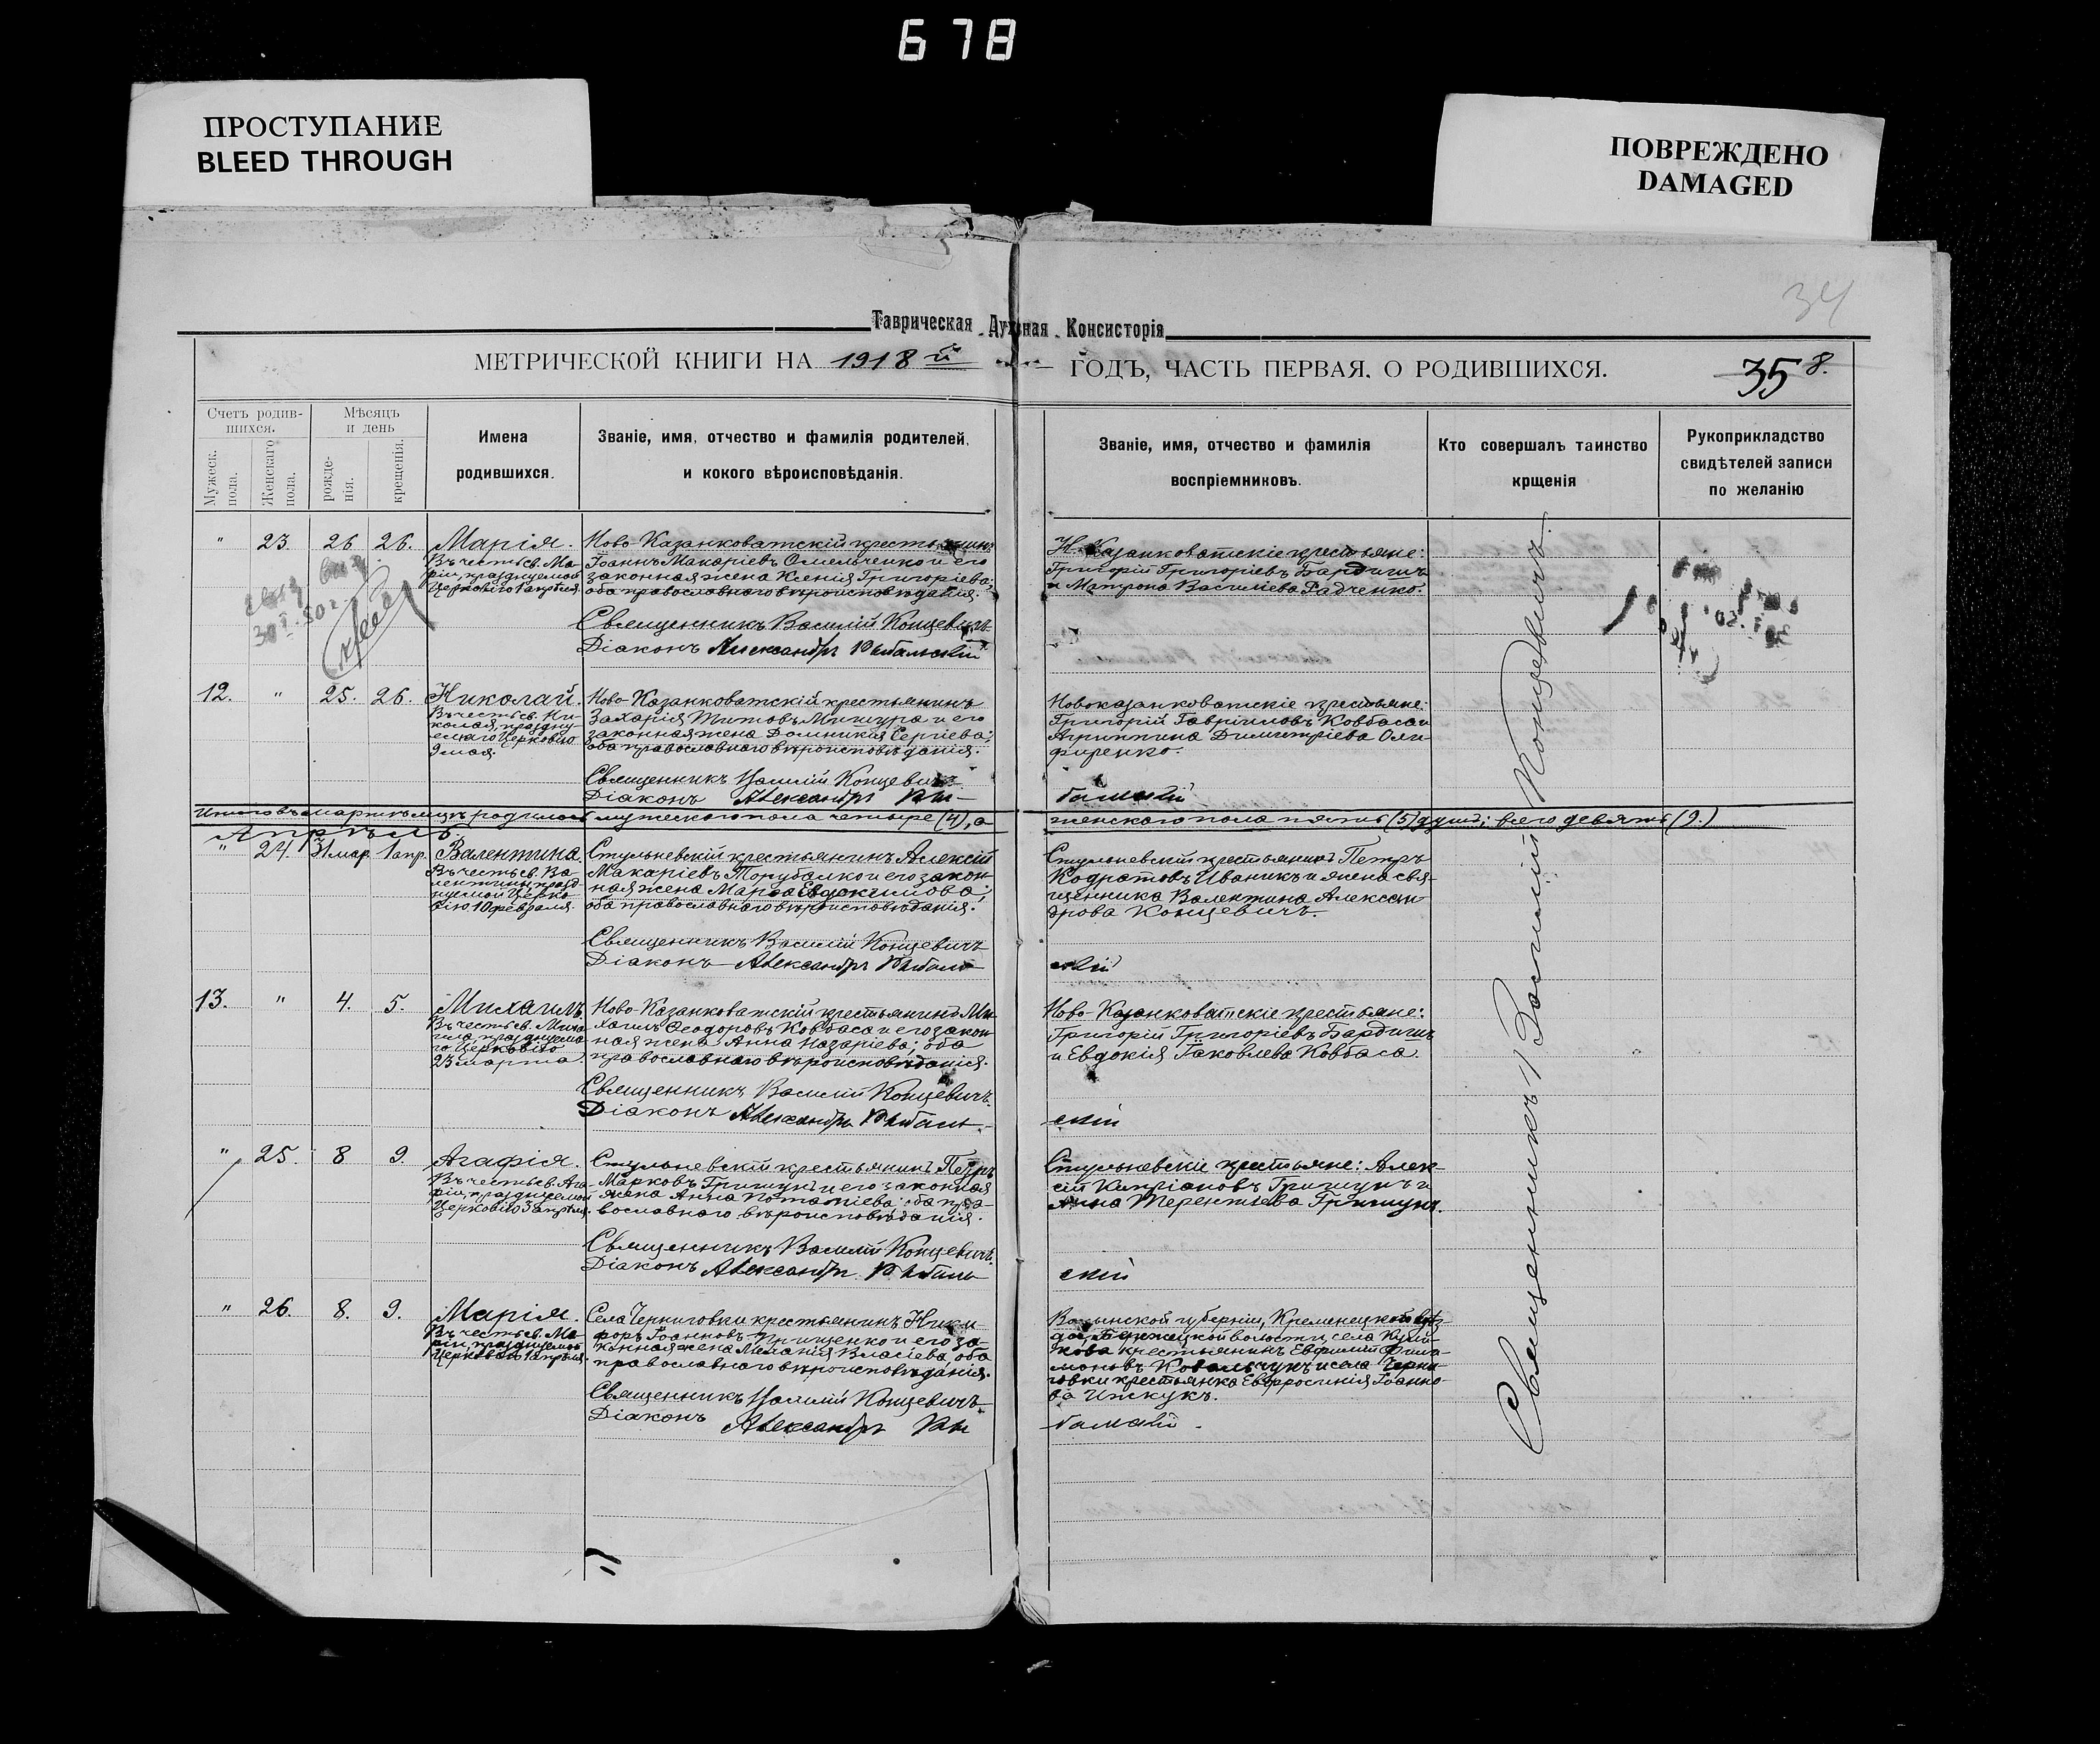 678
ПРОСТУПАНИЕ
BLEED THROUGH
ПОВРЕЖДЕНО
DAMAGED
34
Таврическая Духовная Консисторія
МЕТРИЧЕСКОЙ КНИГИ НА 1918й ГОДЪ, ЧАСТЬ ПЕРВАЯ, О РОДИВШИХСЯ.
35 8.
Счетъ родив-
шихся.
Мужеск.
пола.
Женскаго
пола.
Мѣсяцъ
и день
рожде-
нія.
крещенія.
Имена
родившихся.
Званіе, имя, отчество и фамилія родителей,
и кокого вѣроисповѣданія.
Званіе, имя, отчество и фамилія
воспріемниковъ.
Кто совершалъ таинство
крщенія
Рукоприкладство
свидѣтелей записи
по желанію
" 23. 26 26.
Марія.
Въ честь св. Ма-
ріи, празднуемой
Церковію 1 апрѣля.
Ново-Казанковатскій крестьянинъ
Іоаннъ Макаріевъ Омельченко и его
законная жена Ксенія Григоріева;
оба православнаго вѣроисповѣданія.
Священникъ Василій Концевичъ
Діаконъ Александръ Рыбальскій
Н.-Казанковатскіе крестьяне:
Григорій Григоріевъ Бардишъ
и Матрона Василіева Радченко.
12. " 25. 26.
Николай.
Въ честь св. Ни-
колая, праздну-
емаго Церковію
9 мая.
Ново-Казанковатскій крестьянинъ
Захарія Титовъ Мишура и его
законная жена Домникія Сергіева;
оба православнаго вѣроисповѣданія.
Священникъ Василій Концевичъ
Діаконъ Александръ Ры-
Новоказанковатскіе крестьяне:
Григорій Гавріиловъ Ковбаса и
Агриппина Димитріева Оли-
фиренко.
бальскій
Итого въ мартѣ м-цѣ родилось мужескаго пола четыре (4), а женскаго пола пять (5) душъ; всего девять (9.)
Апрѣль.
" 24. 31 мар. 1 апр.
Валентина.
Въ честь св. Ва-
лентины, празд-
нуемой Церко-
вію 10 февраля.
Стульневскій крестьянинъ Алексій
Макаріевъ Торубалко и его закон-
ная жена Марѳа Евдокимова;
оба православнаго вѣроисповѣданія.
Священникъ Василій Концевичъ
Діаконъ Александръ Рыбаль-
Стульневскій крестьянинъ Петръ
Кодратовъ Иваникъ и жена свя-
щенника Валентина Алексан-
дрова Концевичъ.
скій
13. " 4. 5.
Михаилъ.
Въ честь св. Миха-
ила, празднуема-
го Церковію
23 марта
Ново-Казанковатскій крестьянинъ Ми-
хаилъ Ѳеодоровъ Ковбаса и его закон-
ная жена Анна Назаріева; оба
православнаго вѣроисповѣданія.
Священникъ Василій Концевичъ.
Діаконъ Александръ Рыбаль-
Ново-Казанковатскіе крестьяне:
Григорій Григоріевъ Бардишъ
и Евдокія Іаковлева Ковбаса.
скій
" 25. 8 9.
Агафія.
Въ честь св. Ага-
фіи, празднуемой
Церковію 3 апрѣля.
Стульневскій крестьянинъ Петръ
Марковъ Гришунъ и его законная
жена Анна Потапіева; оба пра-
вославнаго вѣроисповѣданія.
Священникъ Василій Концевичъ.
Діаконъ Александръ Рыбаль-
Стульневскіе крестьяне: Алек-
сій Кипріановъ Гришунъ и
Анна Терентіева Гришунъ.
скій
" 26. 8. 9.
Марія.
Въ честь св. Ма-
ріи, празднуемой
Церковію 1 апрѣля.
Села Черниговки крестьянинъ Ники-
форъ Іоанновъ и его за-
конная жена Меланія Власіева, оба
православнаго вѣроисповѣданія.
Священникъ Василій Концевичъ
Діаконъ Александръ Ры-
Волынской губерніи, Кременецкаго уѣз-
да, волости, села
крестьянинъ Евфимій Фили-
моновъ Ковальчукъ и села Черни-
говки крестьянка Евфросинія Іоанно-
ва
бальскій.
Священникъ Василій Концевичъ.